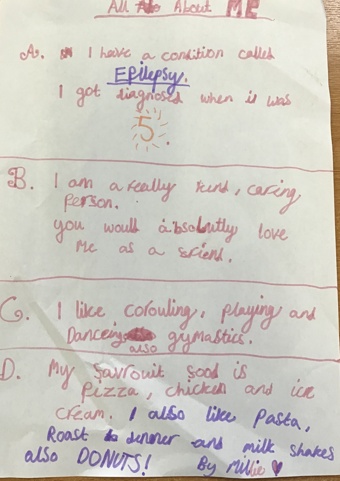 All About ME
A. I have a condition called
Epilepsy.
I got diagnosed when i was
5.
B. I am a really kind, caring
Person.
you would absolutly love
me as a friend.
C. I like colouling, playing and
Danceing gymastics.
also
D. My favrouit food is
Pizza, chicken and ice
cream. I also like Pasta,
Roast dinner and milk shakes
also DONUTS! By Millie